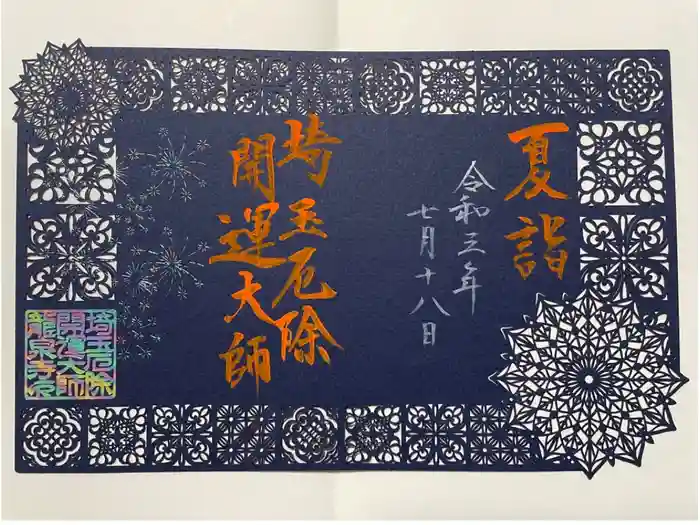 夏詣
令和三年
七月十八日
埼玉厄除
開運大師
埼玉厄除
開運大師
龍泉寺印